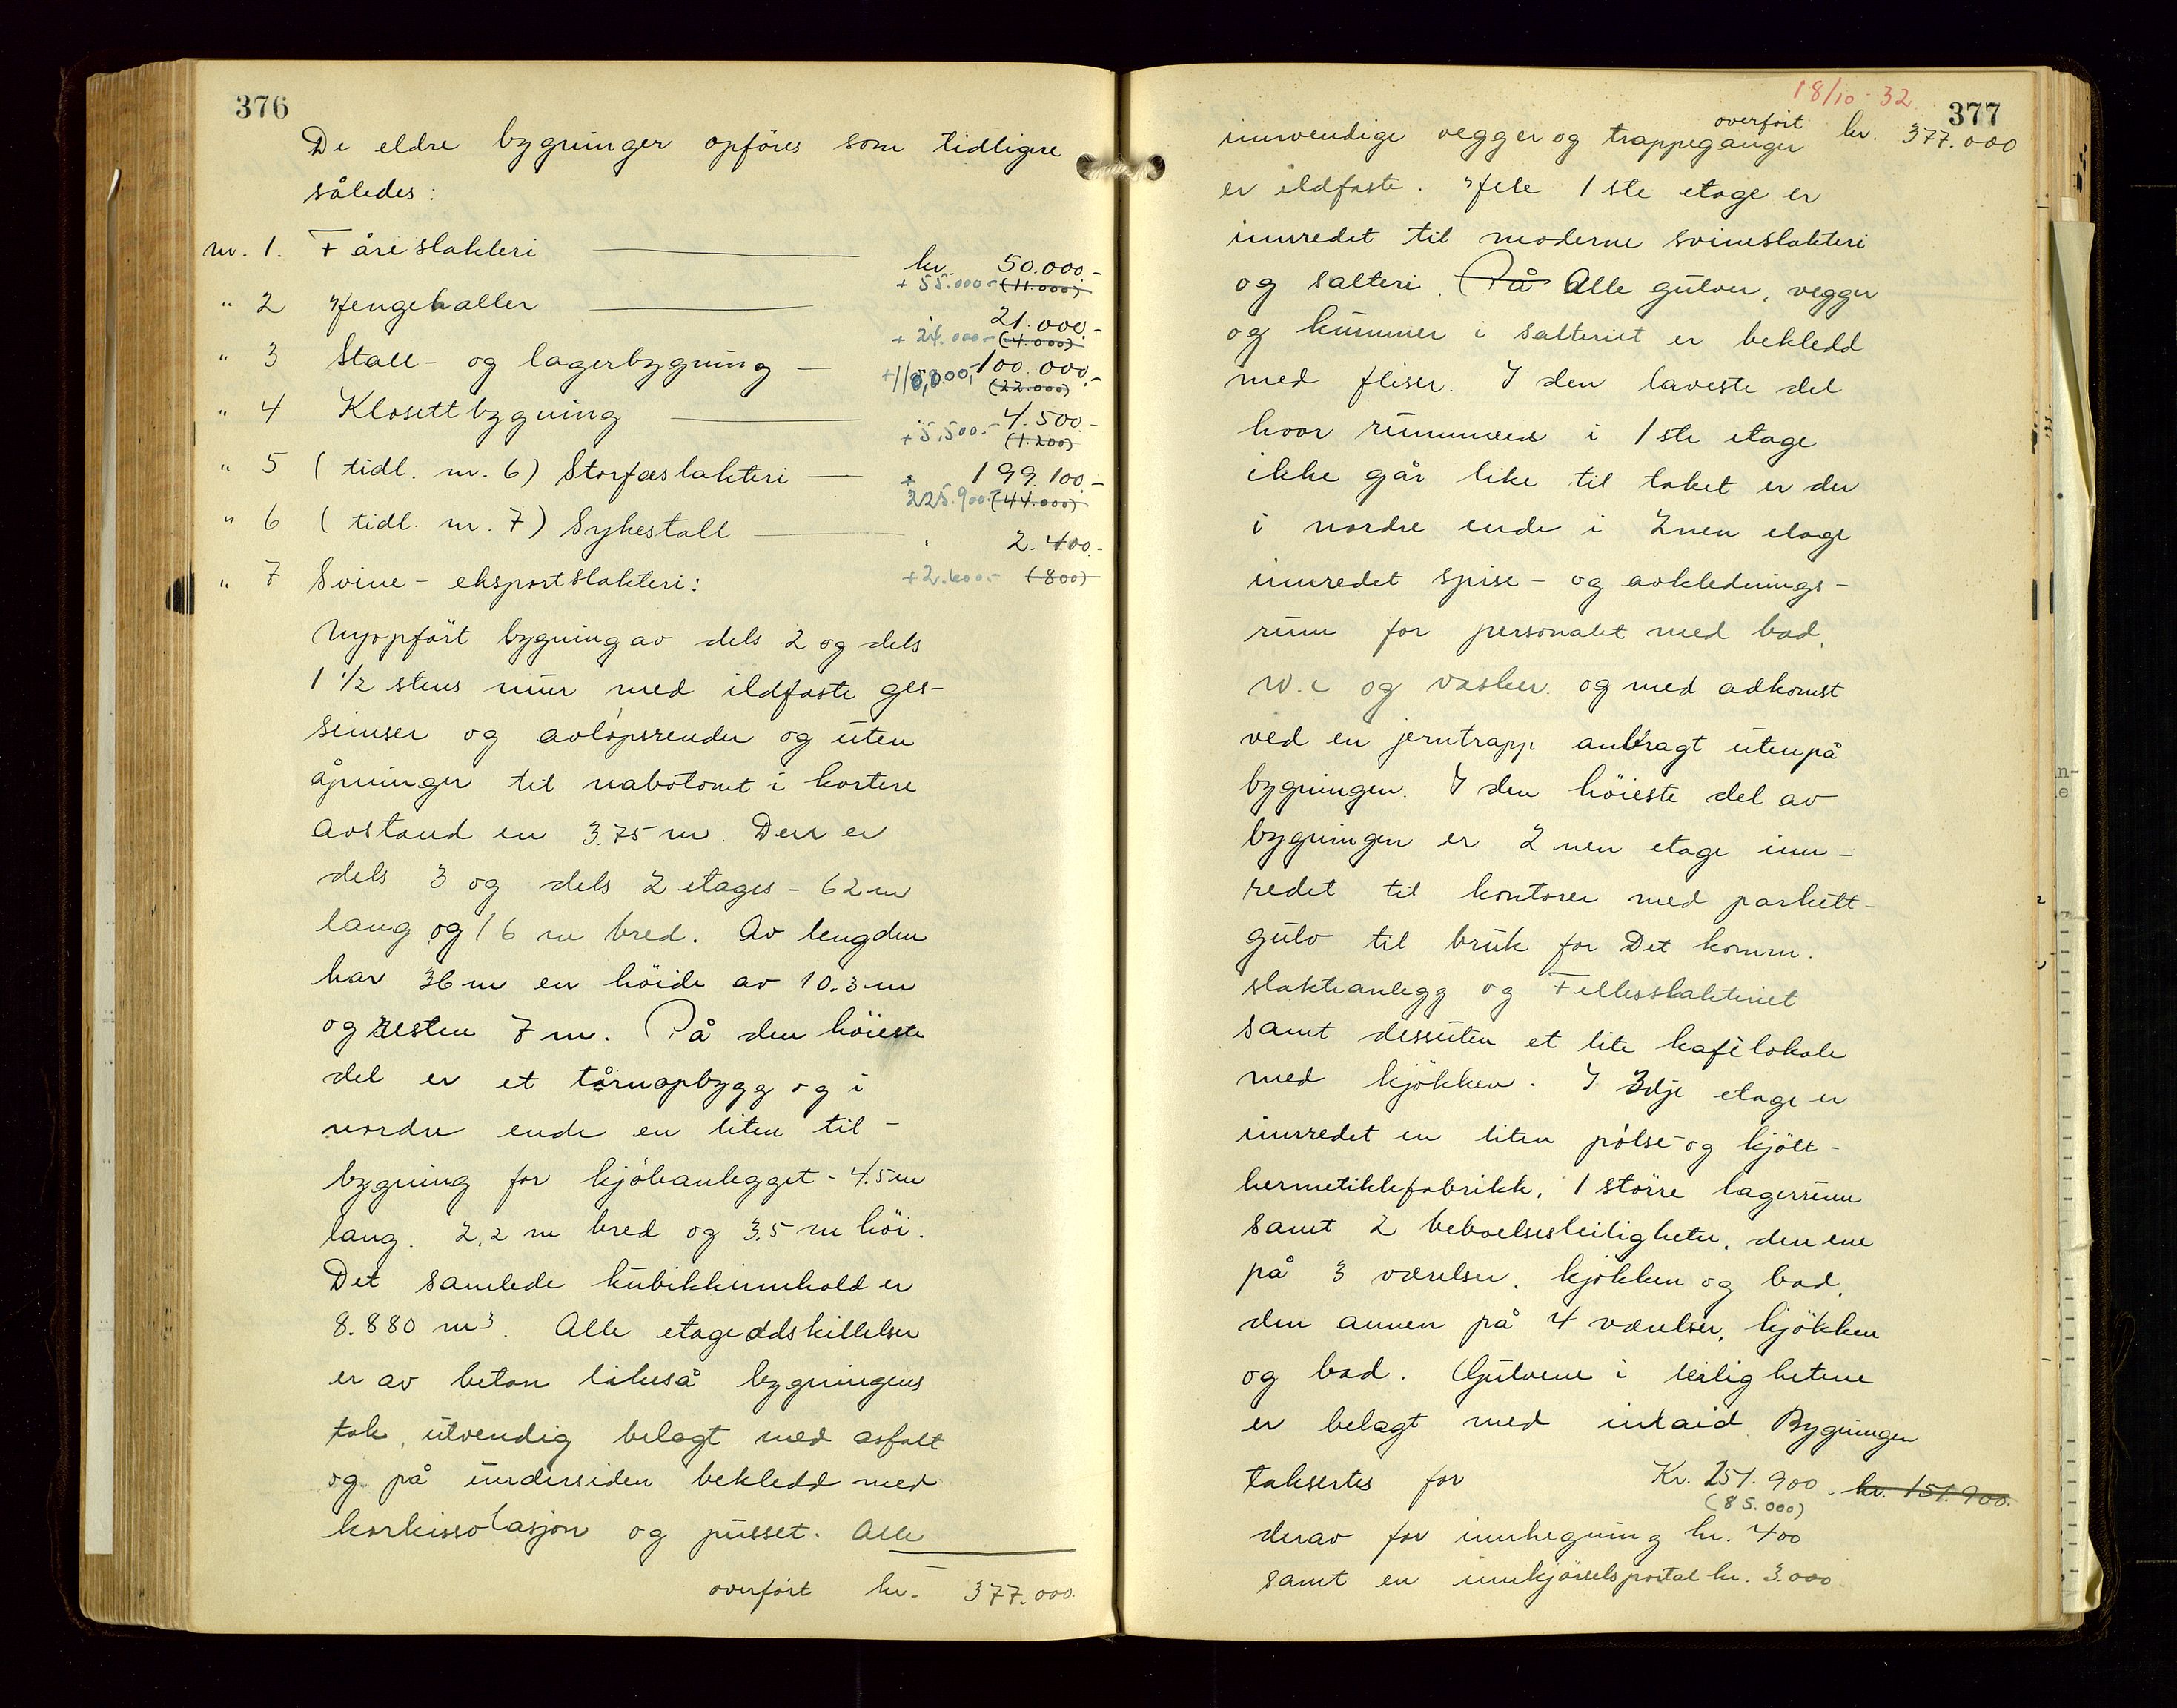 376
De eldre bygninger opföres som tidligere
således:
nr. 1. Fåreslakteri kr. 50.000.-
+ 55.000.- (11.000)
" 2 Hengehaller " 21.000.-
+ 24.000.- (4.000)
" 3 Stall- og lagerbygning 100.000.-
+110,000,- (22.000)
" 4 Klosettbygning " 4.500.-
+5,500.- (1.200)
" 5 (tidl. nr. 6) Storfæslakteri 199.100.-
+ 225.900.- (44.000)
" 6 (tidl. nr. 7) Sykestall " 2.400.-
+2.600.- (800)
" 7 Svine-eksportslakteri:
Nyopfört bygning av dels 2 og dels
1 1/2 stens mur med ildfaste ges-
semser og avlöpsrender og uten
åpninger til nabotomt i kortere
avstand en 3.75 m. Den er
dels 3 og dels 2 etages - 62 m
lang og 16 m bred. Av lengden
har 36 m en höide av 10.3 m
og resten 7 m. På den höieste
del er et tårnopbygg og i
nordre ende en liten til-
bygning for kjöleanlegget - 4.5 m
lang. 2,2 m bred og 3.5 m höi.
Det samlede kubikkinnhold er
8.880 m3. Alle etageadskillelser
er av beton likeså bygningens
tak, utvendig belagt med asfalt
og på undersiden bekledd med
korkissolasjon og pusset. Alle
overfört kr. 377.000.
18/10-32
377
overfört kr. 377.000
innvendige vegger og trappeganger
er ildfaste. Hele 1ste etage er
innredet til moderne svineslakteri
og salteri. På Alle gulver, vegger
og kummer i salteriet er bekledd
med fliser. I den laveste del
hvor rummene i 1ste etage
ikke går like til taket er der
i nordre ende i 2nen etage
innredet spise- og avklednings-
rum for personalet med bad,
W.c og vasker og med adkomst
ved en jerntrapp anbragt utenpå
bygningen. I den höieste del av
bygningen er 2nen etage inn-
redet til kontorer med parkett-
gulv til bruk for Det komm.
slakteanlegg og Fellesslakteriet
samt dessuten et lite kafélokale
med kjökken. I 3dje etage er
innredet en liten pölse- og kjött-
hermetikkfabrikk, 1 större lagerrum
samt 2 beboelsesleiligheter, den ene
på 3 værelser, kjökken og bad,
den annen på 4 værelser, kjökken
og bad. Gulvene i leilighetene
er belagt med inlaid Bygningen
taksertes for Kr. 251.900. kr. 151.900.
(85.000)
derav for innhegning kr. 400
samt en innkjörselsportal kr. 3.000